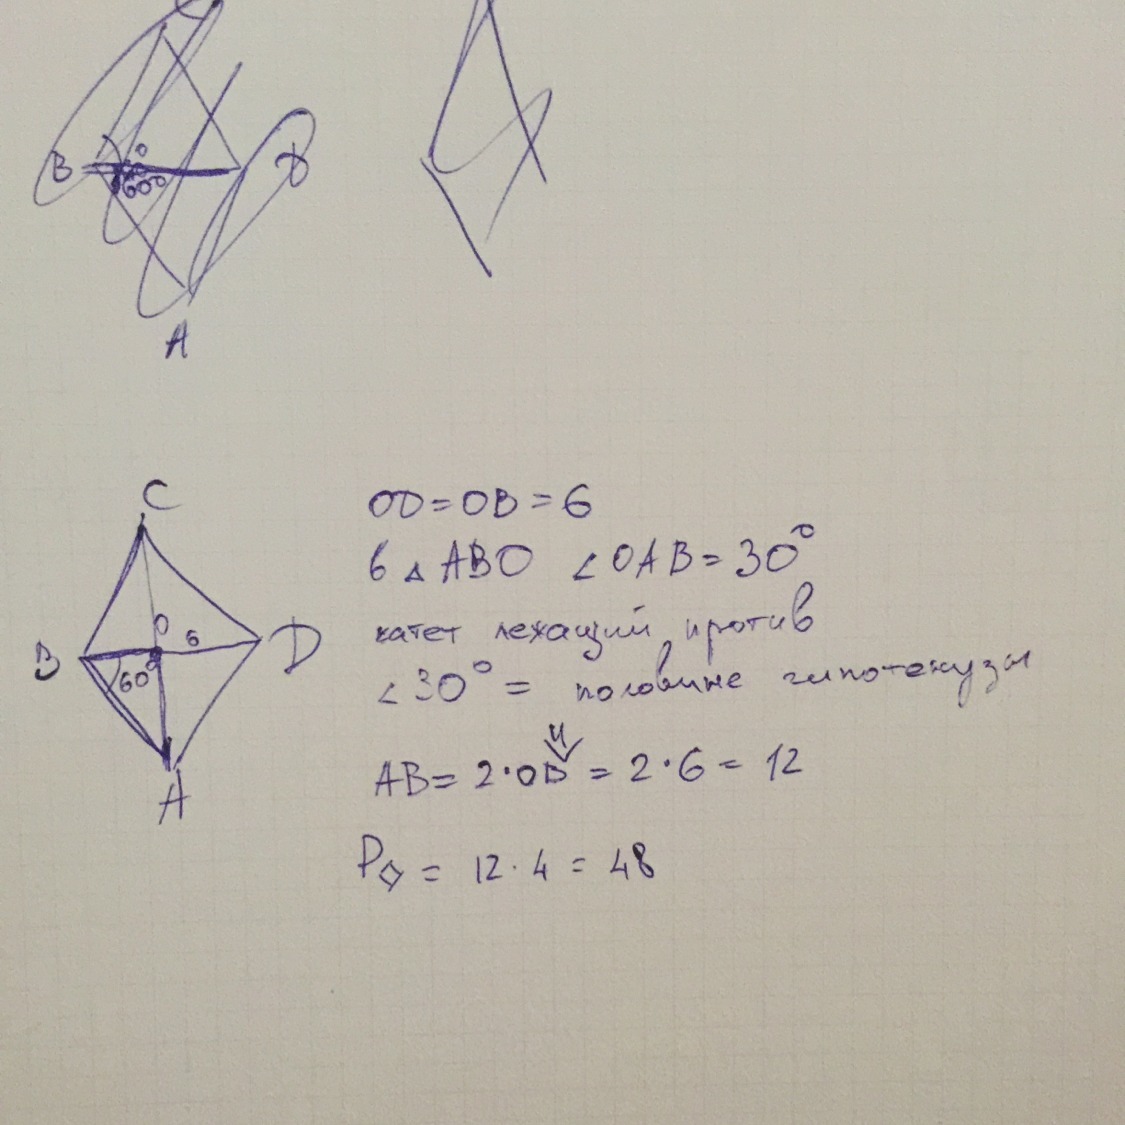 B
60°
D
A
C
O
6
B
D
60°
A
OD = OB = 6
в △ ABO ∠OAB = 30°
катет лежащий против
∠30° = половине гипотенузы
AB = 2·OB = 2·6 = 12
P◇ = 12·4 = 48